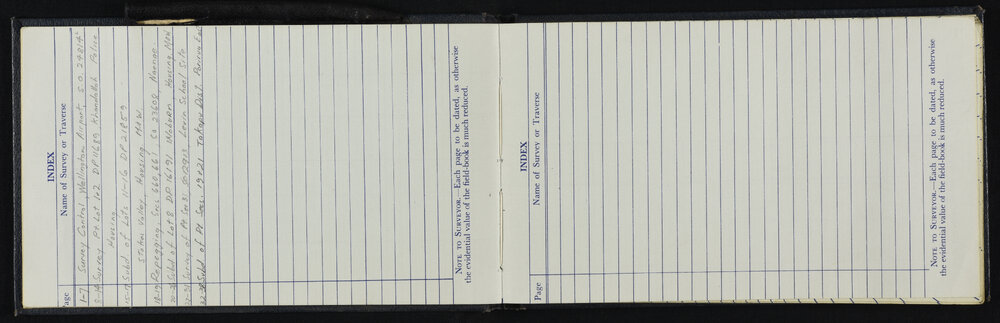 INDEX
Page Name of Survey or Traverse
1-7 Survey Control Wellington Airport, S.O. 24814
8-14 Survey Pt. Lot 1&2 DP 11689 Khandallah Police
Housing
15-17 Subd. of Lots 11-16 DP 21859
Stokes Valley Housing MOW
18-19 Repegging Secs 660,661, S.O. 23608
Subd of Lot 8 DP 16191 Woburn Housing MOW
Survey of Pt Sec 31 Levin School Site
Subd of Pt Secs 19 & 21 Takapu Dist. Porirua East
NOTE TO SURVEYOR.—Each page to be dated, as otherwise
the evidential value of the field-book is much reduced.
INDEX
Page Name of Survey or Traverse
NOTE TO SURVEYOR.—Each page to be dated, as otherwise
the evidential value of the field-book is much reduced.